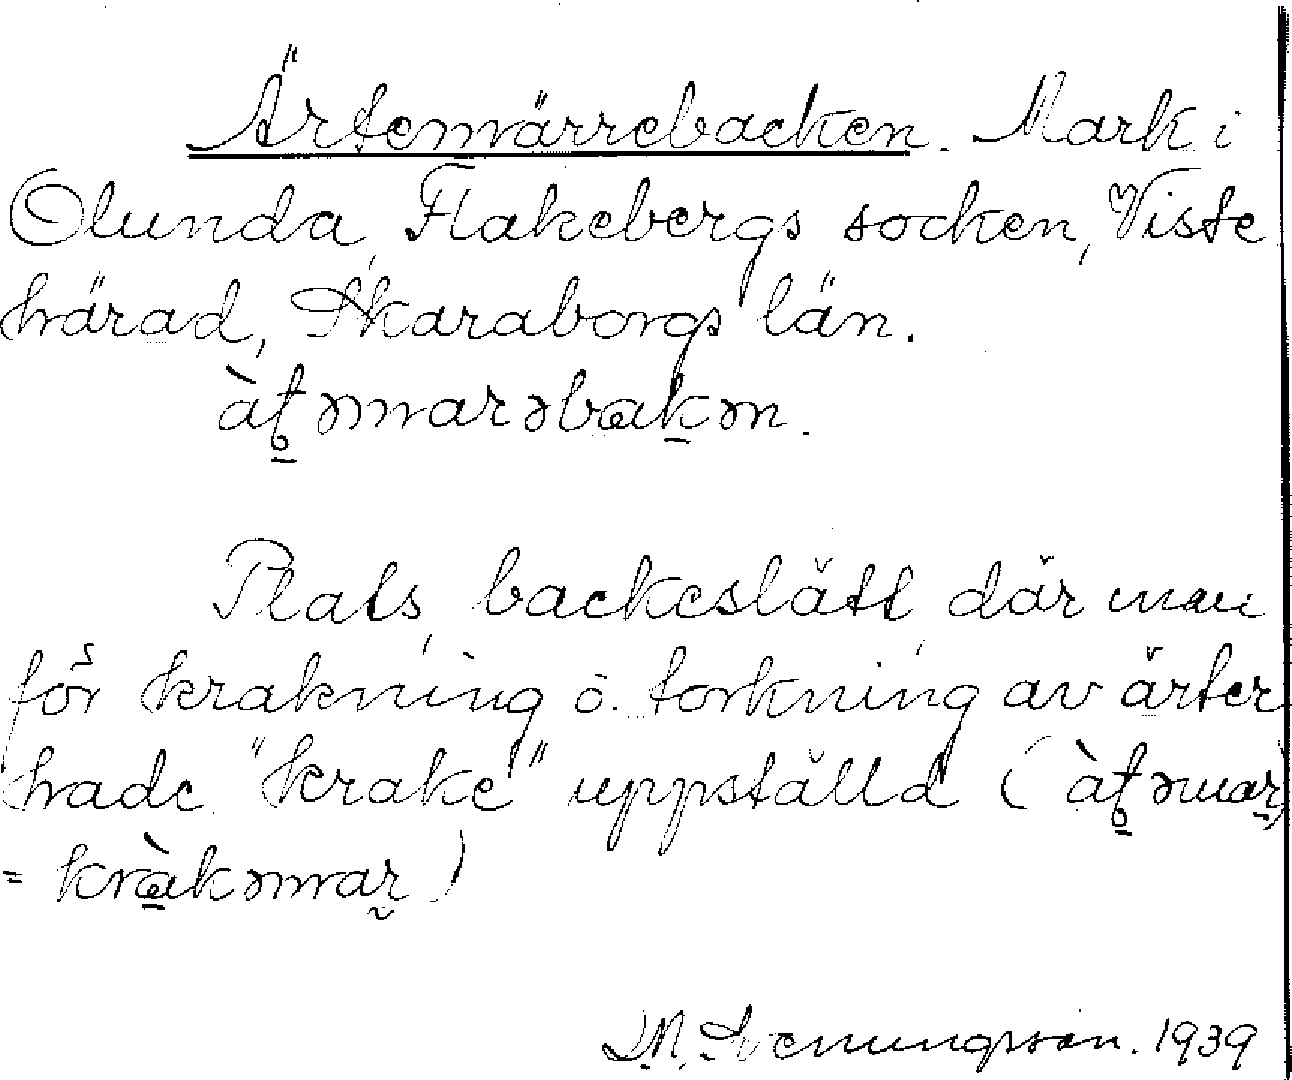 Ärtemärrebacken. Mark i
Olunda, Flakebergs socken, Viste
härad, Skaraborgs län.
àt̠əmarəbak̠ən.
Plats, backeslätt, där man
för krakning o. torkning av ärter
hade "krake" uppställd (àt̠əmar̰,
= kràkəmar̰)
M. Svenungsson. 1939